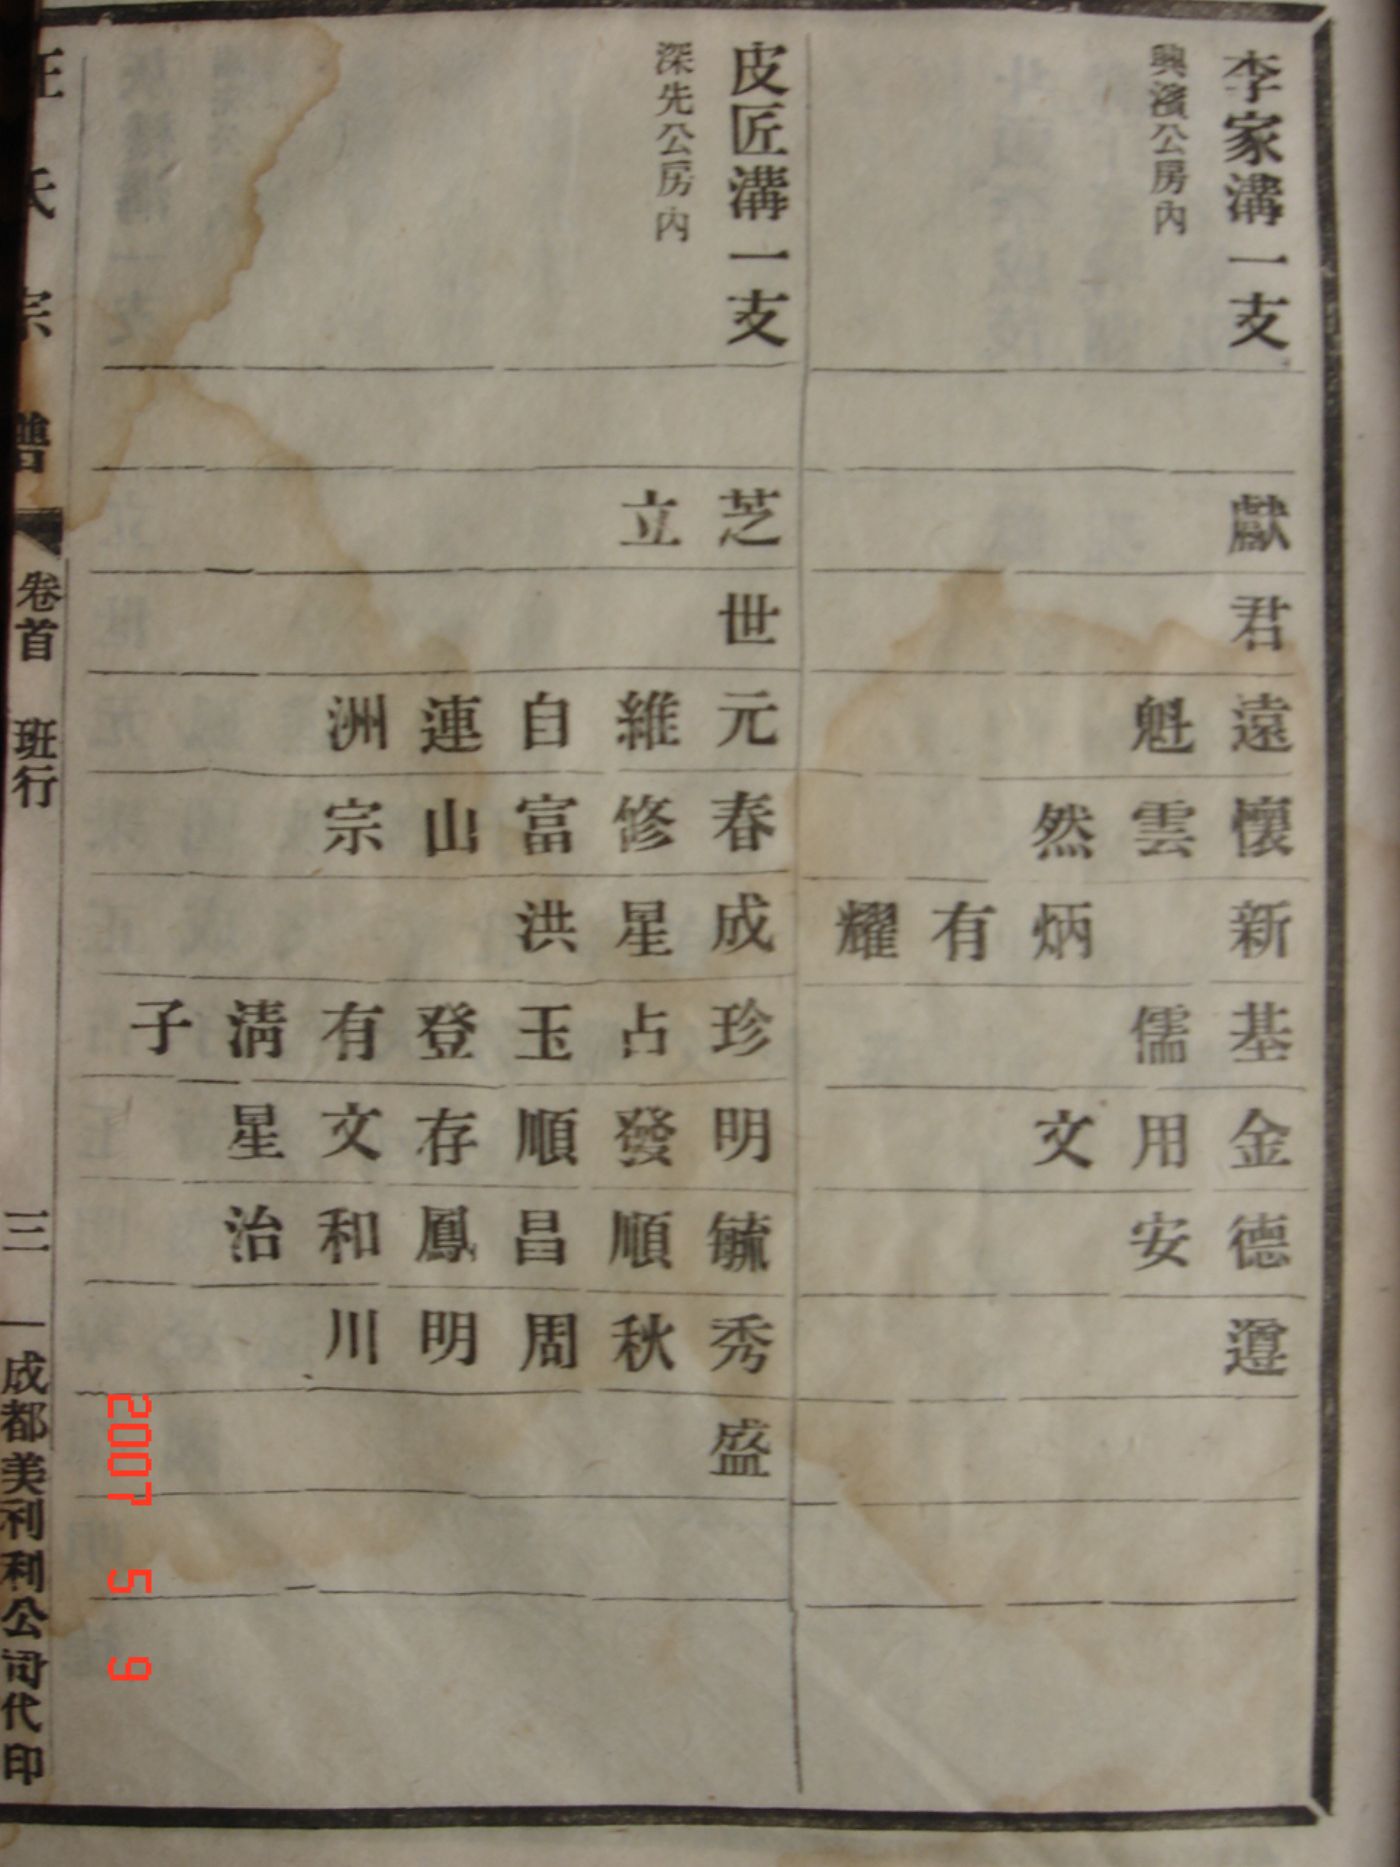 李家溝一支
興濱公房內
獻
君
遠魁
懷雲然
新炳有耀
基儒
金用文
德安
遵
皮匠溝一支
深先公房內
芝立
世
元維自連洲
春修富山宗
成星洪
珍占玉登有淸子
明發順存文星
毓順昌鳳和治
秀秋周明川
盛
汪氏宗譜
卷首 班行
三
成都美利利公司代印
2007 5 9